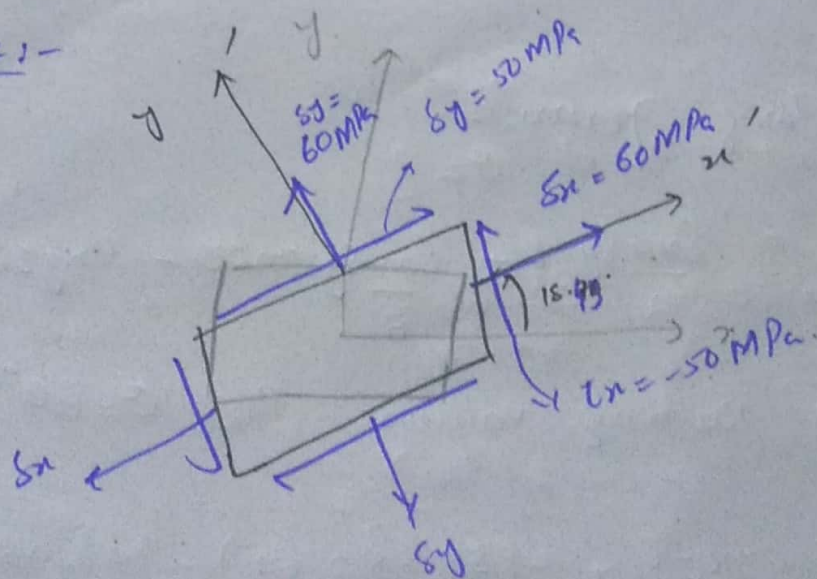 :-
y '
y
δy =
60MPa
δy = 50MPa
δx = 60MPa
x '
18.49°
τx = -50 MPa.
δx
δy